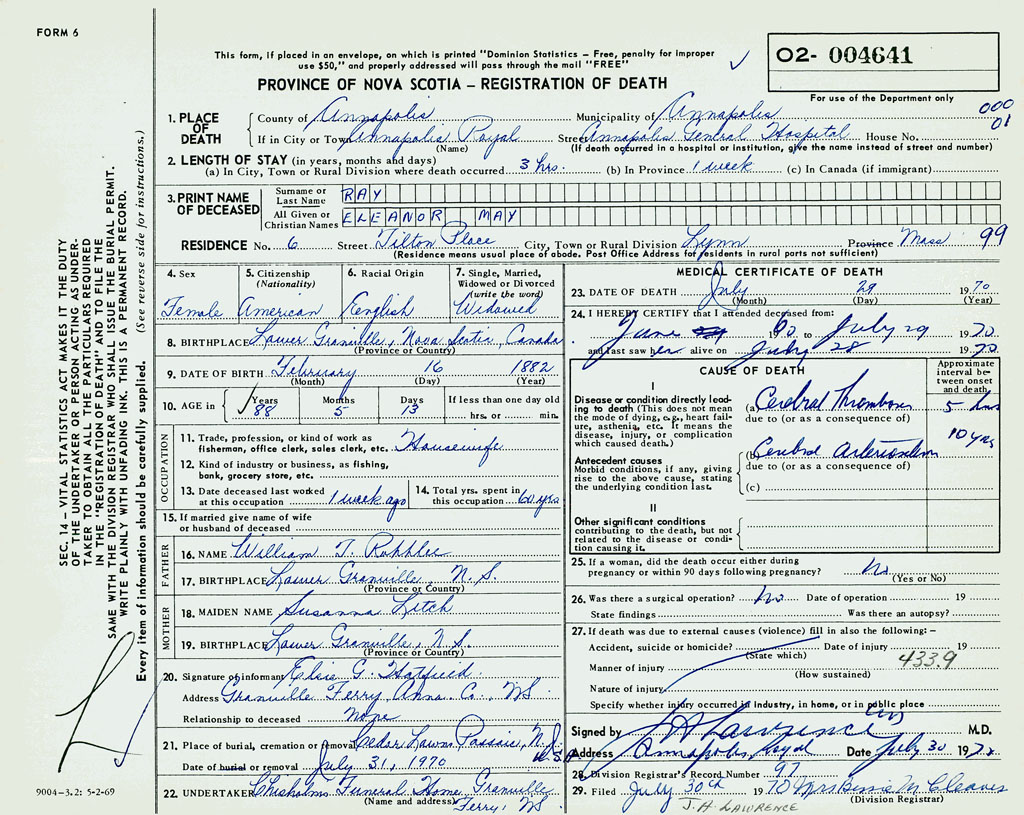 FORM 6
This form, if placed in an envelope, on which is printed "Dominion Statistics – Free, penalty for improper
use $50," and properly addressed will pass through the mail "FREE"
02- 004641
PROVINCE OF NOVA SCOTIA – REGISTRATION OF DEATH
For use of the Department only
000
01
1. PLACE OF DEATH
County of Annapolis Municipality of Annapolis
If in City or Town Annapolis Royal Street Annapolis General Hospital House No.
(Name) (If death occurred in a hospital or institution, give the name instead of street and number)
2. LENGTH OF STAY (in years, months and days)
(a) In City, Town or Rural Division where death occurred 3 hrs. (b) In Province 1 week (c) In Canada (if immigrant)
3. PRINT NAME OF DECEASED
Surname or Last Name RAY
All Given or Christian Names ELEANOR MAY
RESIDENCE No. 6 Street Tilton Place City, Town or Rural Division Lynn Province Mass 99
(Residence means usual place of abode. Post Office Address for residents in rural parts not sufficient)
4. Sex
Female
5. Citizenship
(Nationality)
American
6. Racial Origin
English
7. Single, Married,
Widowed or Divorced
(write the word)
Widowed
8. BIRTHPLACE Lower Granville, Nova Scotia, Canada
(Province or Country)
9. DATE OF BIRTH February 16 1882
(Month) (Day) (Year)
10. AGE in Years 88 Months 5 Days 13 If less than one day old
hrs. or min.
OCCUPATION
11. Trade, profession, or kind of work as
fisherman, office clerk, sales clerk, etc. Housewife
12. Kind of industry or business, as fishing,
bank, grocery store, etc.
13. Date deceased last worked
at this occupation 1 week ago
14. Total yrs. spent in
this occupation 60 yrs
15. If married give name of wife
or husband of deceased
FATHER
16. NAME William T.
17. BIRTHPLACE Lower Granville, N.S.
(Province or Country)
MOTHER
18. MAIDEN NAME Susanna
19. BIRTHPLACE Lower Granville, N.S.
(Province or Country)
20. Signature of informant Elsie G. Hatfield
Address Granville Ferry, Anna. Co., NS
Relationship to deceased None
21. Place of burial, cremation or removal Cedar Lawn Passaic, N.J.
U.S.A.
Date of burial or removal July 31, 1970
22. UNDERTAKER Chisholms Funeral Home Granville
(Name and address) Ferry, NS
MEDICAL CERTIFICATE OF DEATH
23. DATE OF DEATH July 29 1970
(Month) (Day) (Year)
24. I HEREBY CERTIFY that I attended deceased from:
June 19 to July 29 1970
and last saw her alive on July 28 1970
CAUSE OF DEATH
Approximate
interval be-
tween onset
and death
I
Disease or condition directly lead-
ing to death (This does not mean
the mode of dying, e.g., heart failure,
asthenia, etc. It means the
disease, injury, or complication
which caused death.)
(a) Cerebral Thrombosis 5 hrs
due to (or as a consequence of)
Antecedent causes
Morbid conditions, if any, giving
rise to the above cause, stating
the underlying condition last.
(b) Cerebral Arteriosclerosis 10 yrs
due to (or as a consequence of)
(c)
II
Other significant conditions
contributing to the death, but not
related to the disease or condi-
tion causing it.
25. If a woman, did the death occur either during
pregnancy or within 90 days following pregnancy? No
(Yes or No)
26. Was there a surgical operation? No Date of operation 19
State findings Was there an autopsy?
27. If death was due to external causes (violence) fill in also the following:–
Accident, suicide or homicide? Date of injury 19
(State which) 433.9
Manner of injury
(How sustained)
Nature of injury
Specify whether injury occurred in industry, in home, or in public place
Signed by J H Lawrence M.D.
Address Annapolis Royal Date July 30 1970
28. Division Registrar's Record Number 97
29. Filed July 30th 1970 Mrs Bessie M Cleaves
(Division Registrar)
J.H. LAWRENCE
SEC. 14 – VITAL STATISTICS ACT MAKES IT THE DUTY
OF THE UNDERTAKER OR PERSON ACTING AS UNDER-
TAKER TO OBTAIN ALL THE PARTICULARS REQUIRED
IN THE "REGISTRATION OF DEATH" AND TO FILE THE
SAME WITH THE DIVISION REGISTRAR WHO SHALL ISSUE THE BURIAL PERMIT.
WRITE PLAINLY WITH UNFADING INK. THIS IS A PERMANENT RECORD.
Every item of information should be carefully supplied. (See reverse side for instructions.)
9004–3.2: 5-2-69